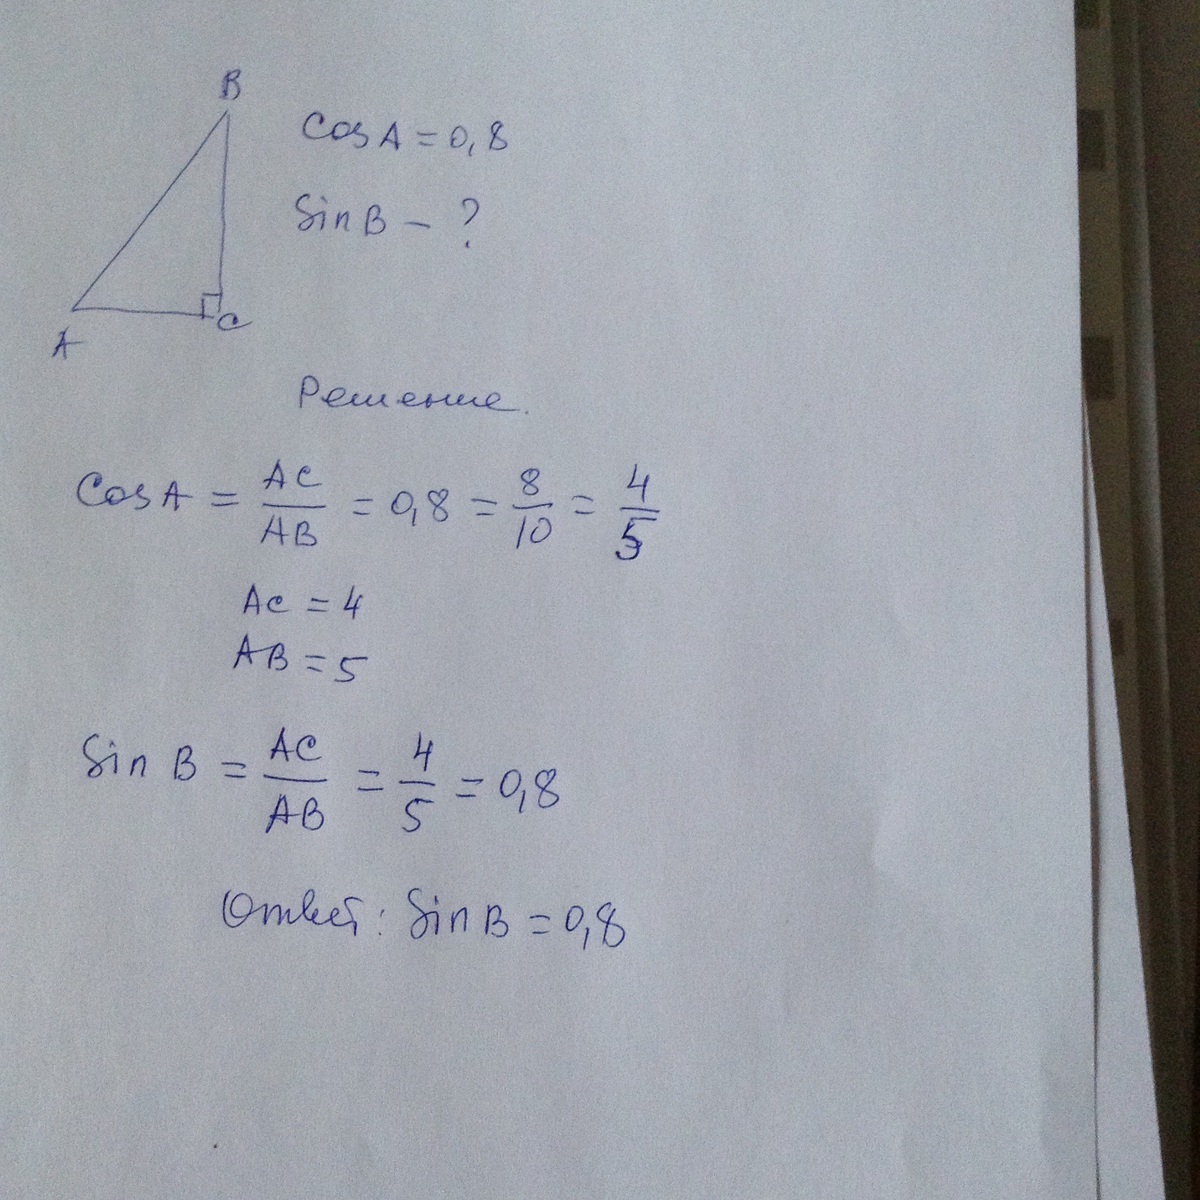 B
Cos A = 0,8
Sin B - ?
A
C
Решение.
Cos A = AC/AB = 0,8 = 8/10 = 4/5
AC = 4
AB = 5
Sin B = AC/AB = 4/5 = 0,8
Ответ: Sin B = 0,8